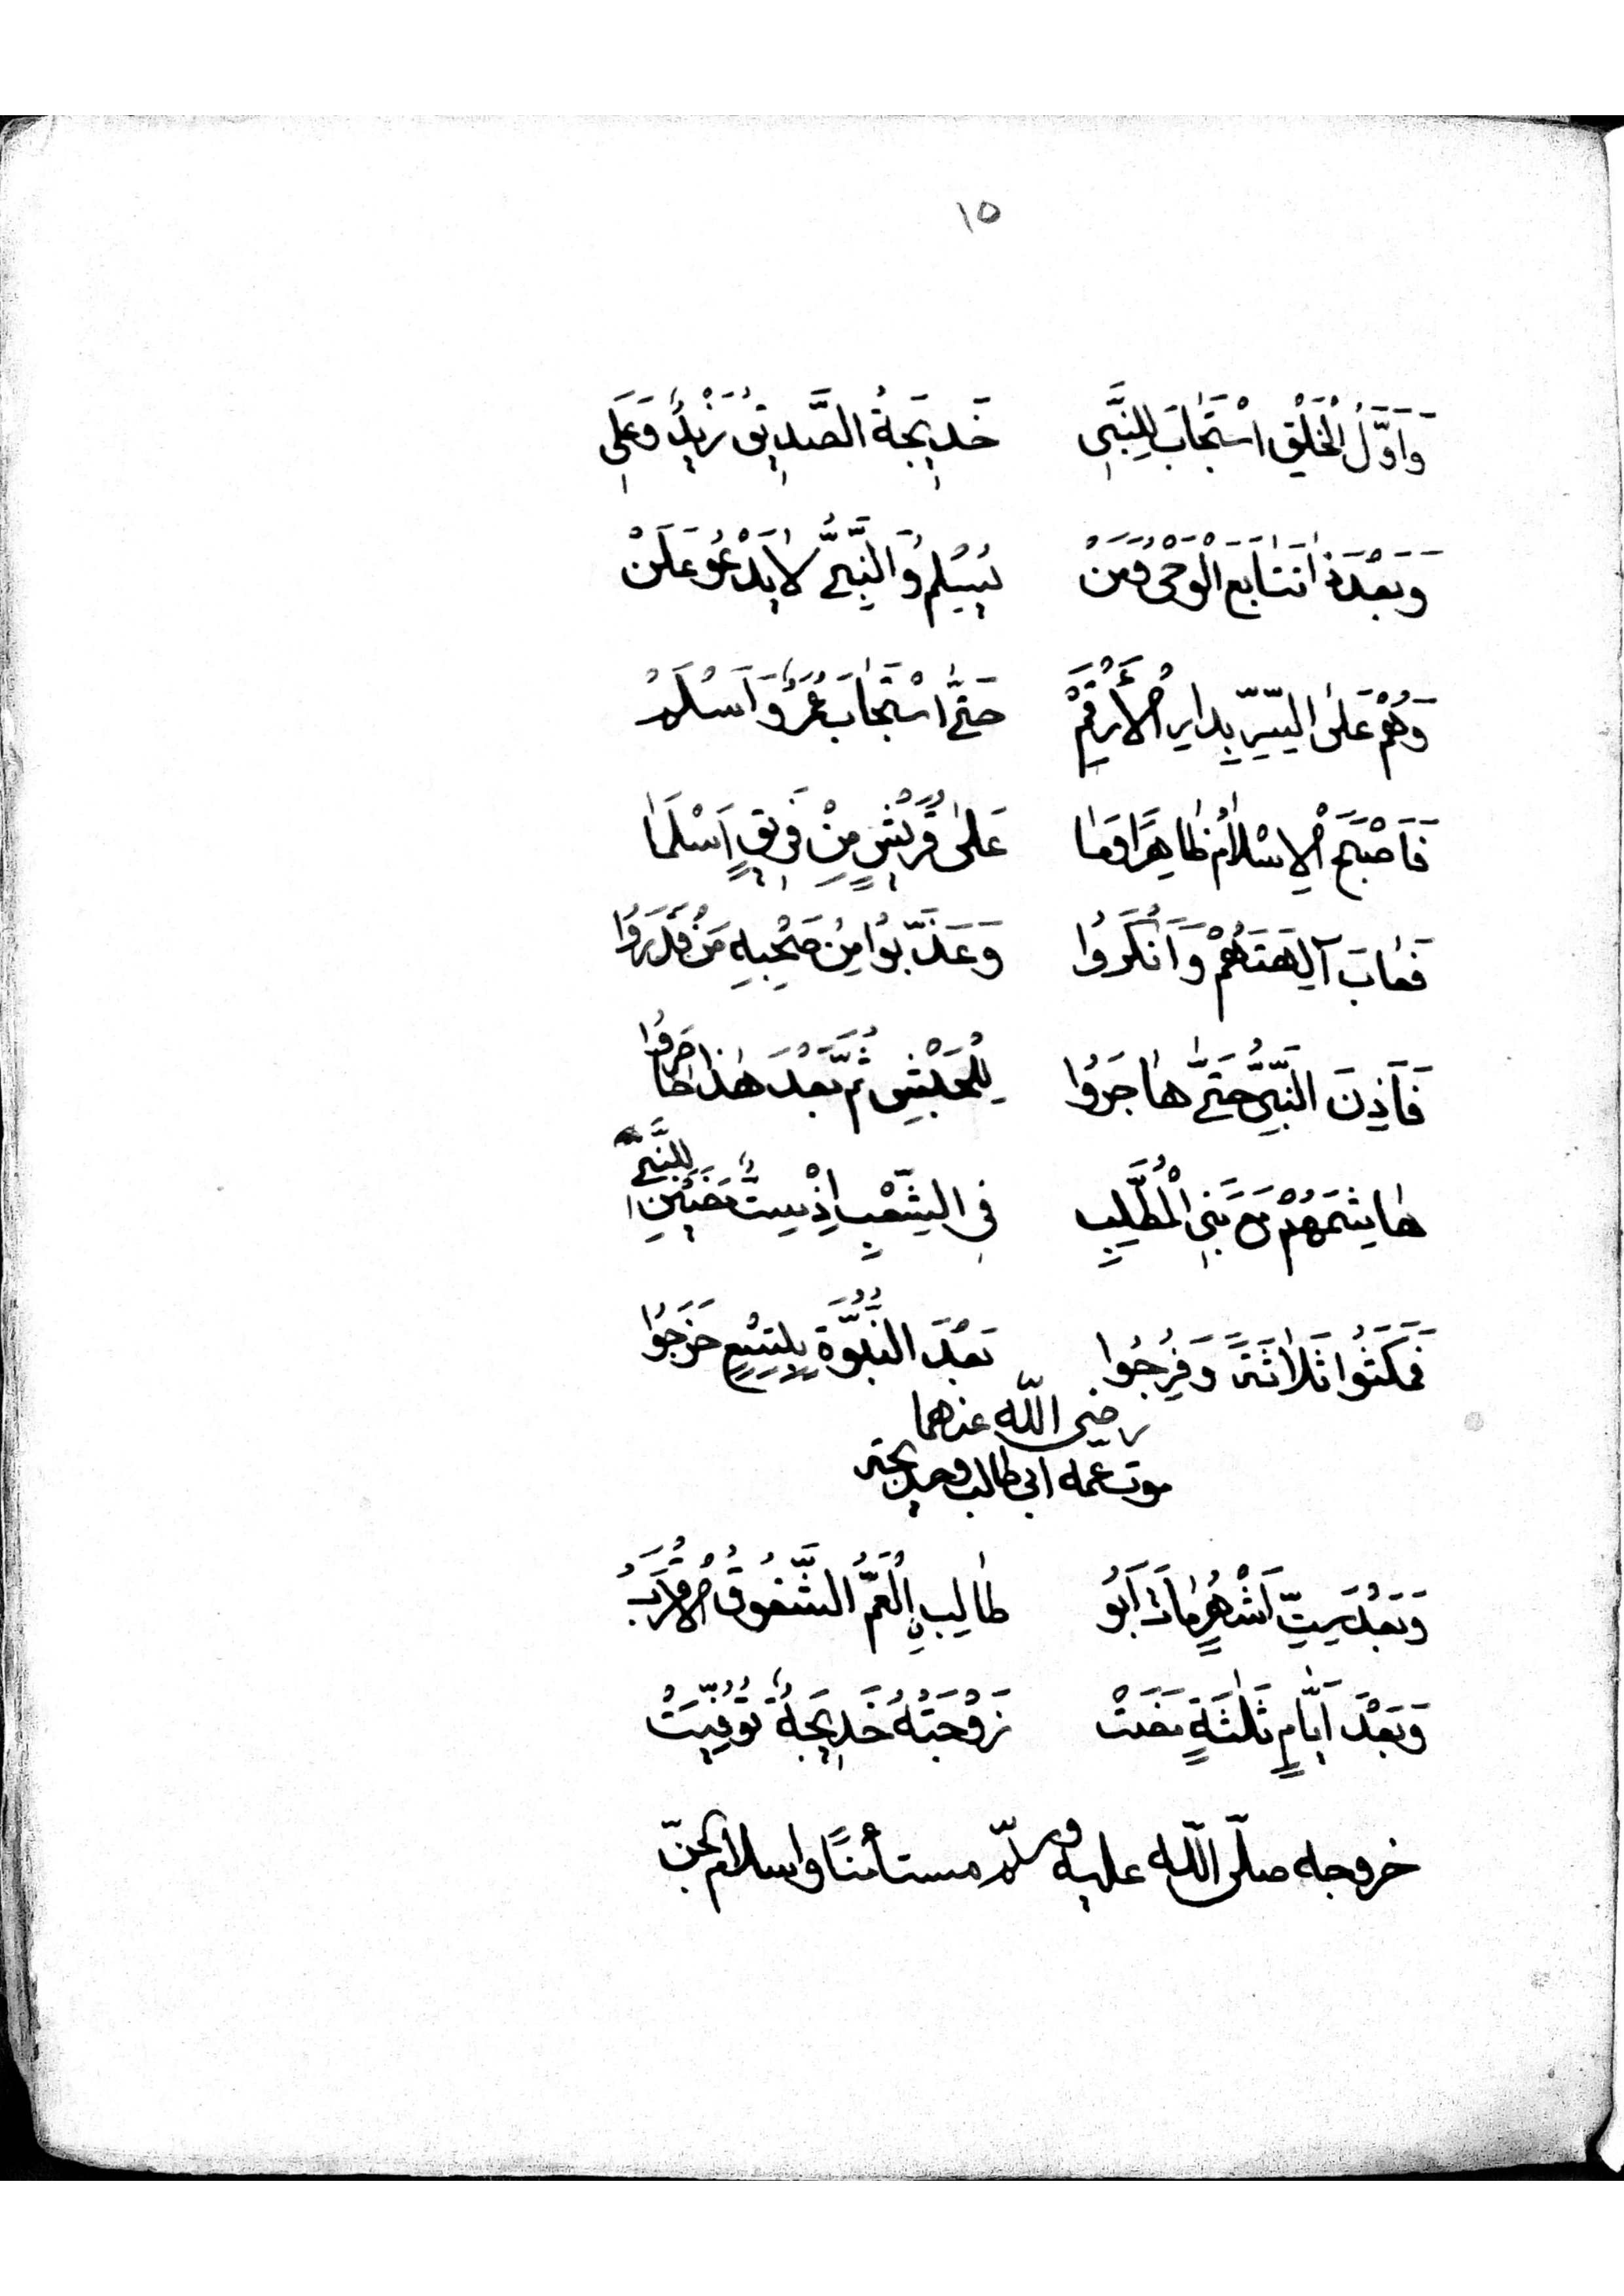 ١٥
وَاَوَّلُ الْخَلْقِ اسْتَجَابَ لِلنَّبِى خَدِيجَةُ الصِّدِيقُ زَيْدٌ وَعَلِى
وَبَعْدَهُ اتَتَابَعَ الْوَحْىُ وَمَنْ يُسْلِمُ وَالنَّبِىُّ لَا يَدْعُو عَلَنْ
وَهُمْ عَلَى السِّرِّ بِدَارِ الْأَرْقَمِ حَتَّى اسْتَجَابَ عُمَرٌ وَاَسْلَمْ
فَاَصْبَحَ الْاِسْلَامُ ظَاهِرًا وَمَا عَلَى قُرَيْشٍ مِنْ فَرِيقٍ اَسْلَمَا
فَعَابَ آلِهَتَهُمْ وَاَنْكَرُوا وَعَذَّبُوا مِنْ صَحْبِهِ مَنْ قَدَرُوا
فَاَذِنَ النَّبِىُّ حَتَّى هَاجَرُوا لِلْحَبْشِ ثُمَّ بَعْدَ هٰذَا حَاصَرُوا
هَاشِمَهُمْ مَعَ بَنِى الْمُطَّلِبِ فِى الشِّعْبِ اِذْ سِتٌّ مَضَيْنَ لِلنَّبِىِّ
فَمَكَثُوا ثَلَاثَةً وَفُرِجُوا بَعْدَ النُّبُوَّةِ بِتِسْعٍ خَرَجُوا
رضى اللّه عنهما
موت عمه ابى طالب وخديجة
وَبَعْدَ سِتِّ اَشْهُرٍ مَاتَ اَبُو طَالِبٍ اِلْعَمُّ الشَّفُوقُ الْاَقْرَبُ
وَبَعْدَ اَيَّامٍ ثَلٰثَةٍ مَضَتْ زَوْجَتُهُ خَدِيجَةٌ تُوُفِّيَتْ
خروجه صلّى اللّه عليه وسلّم مستأمنًا واسلام الجنّ